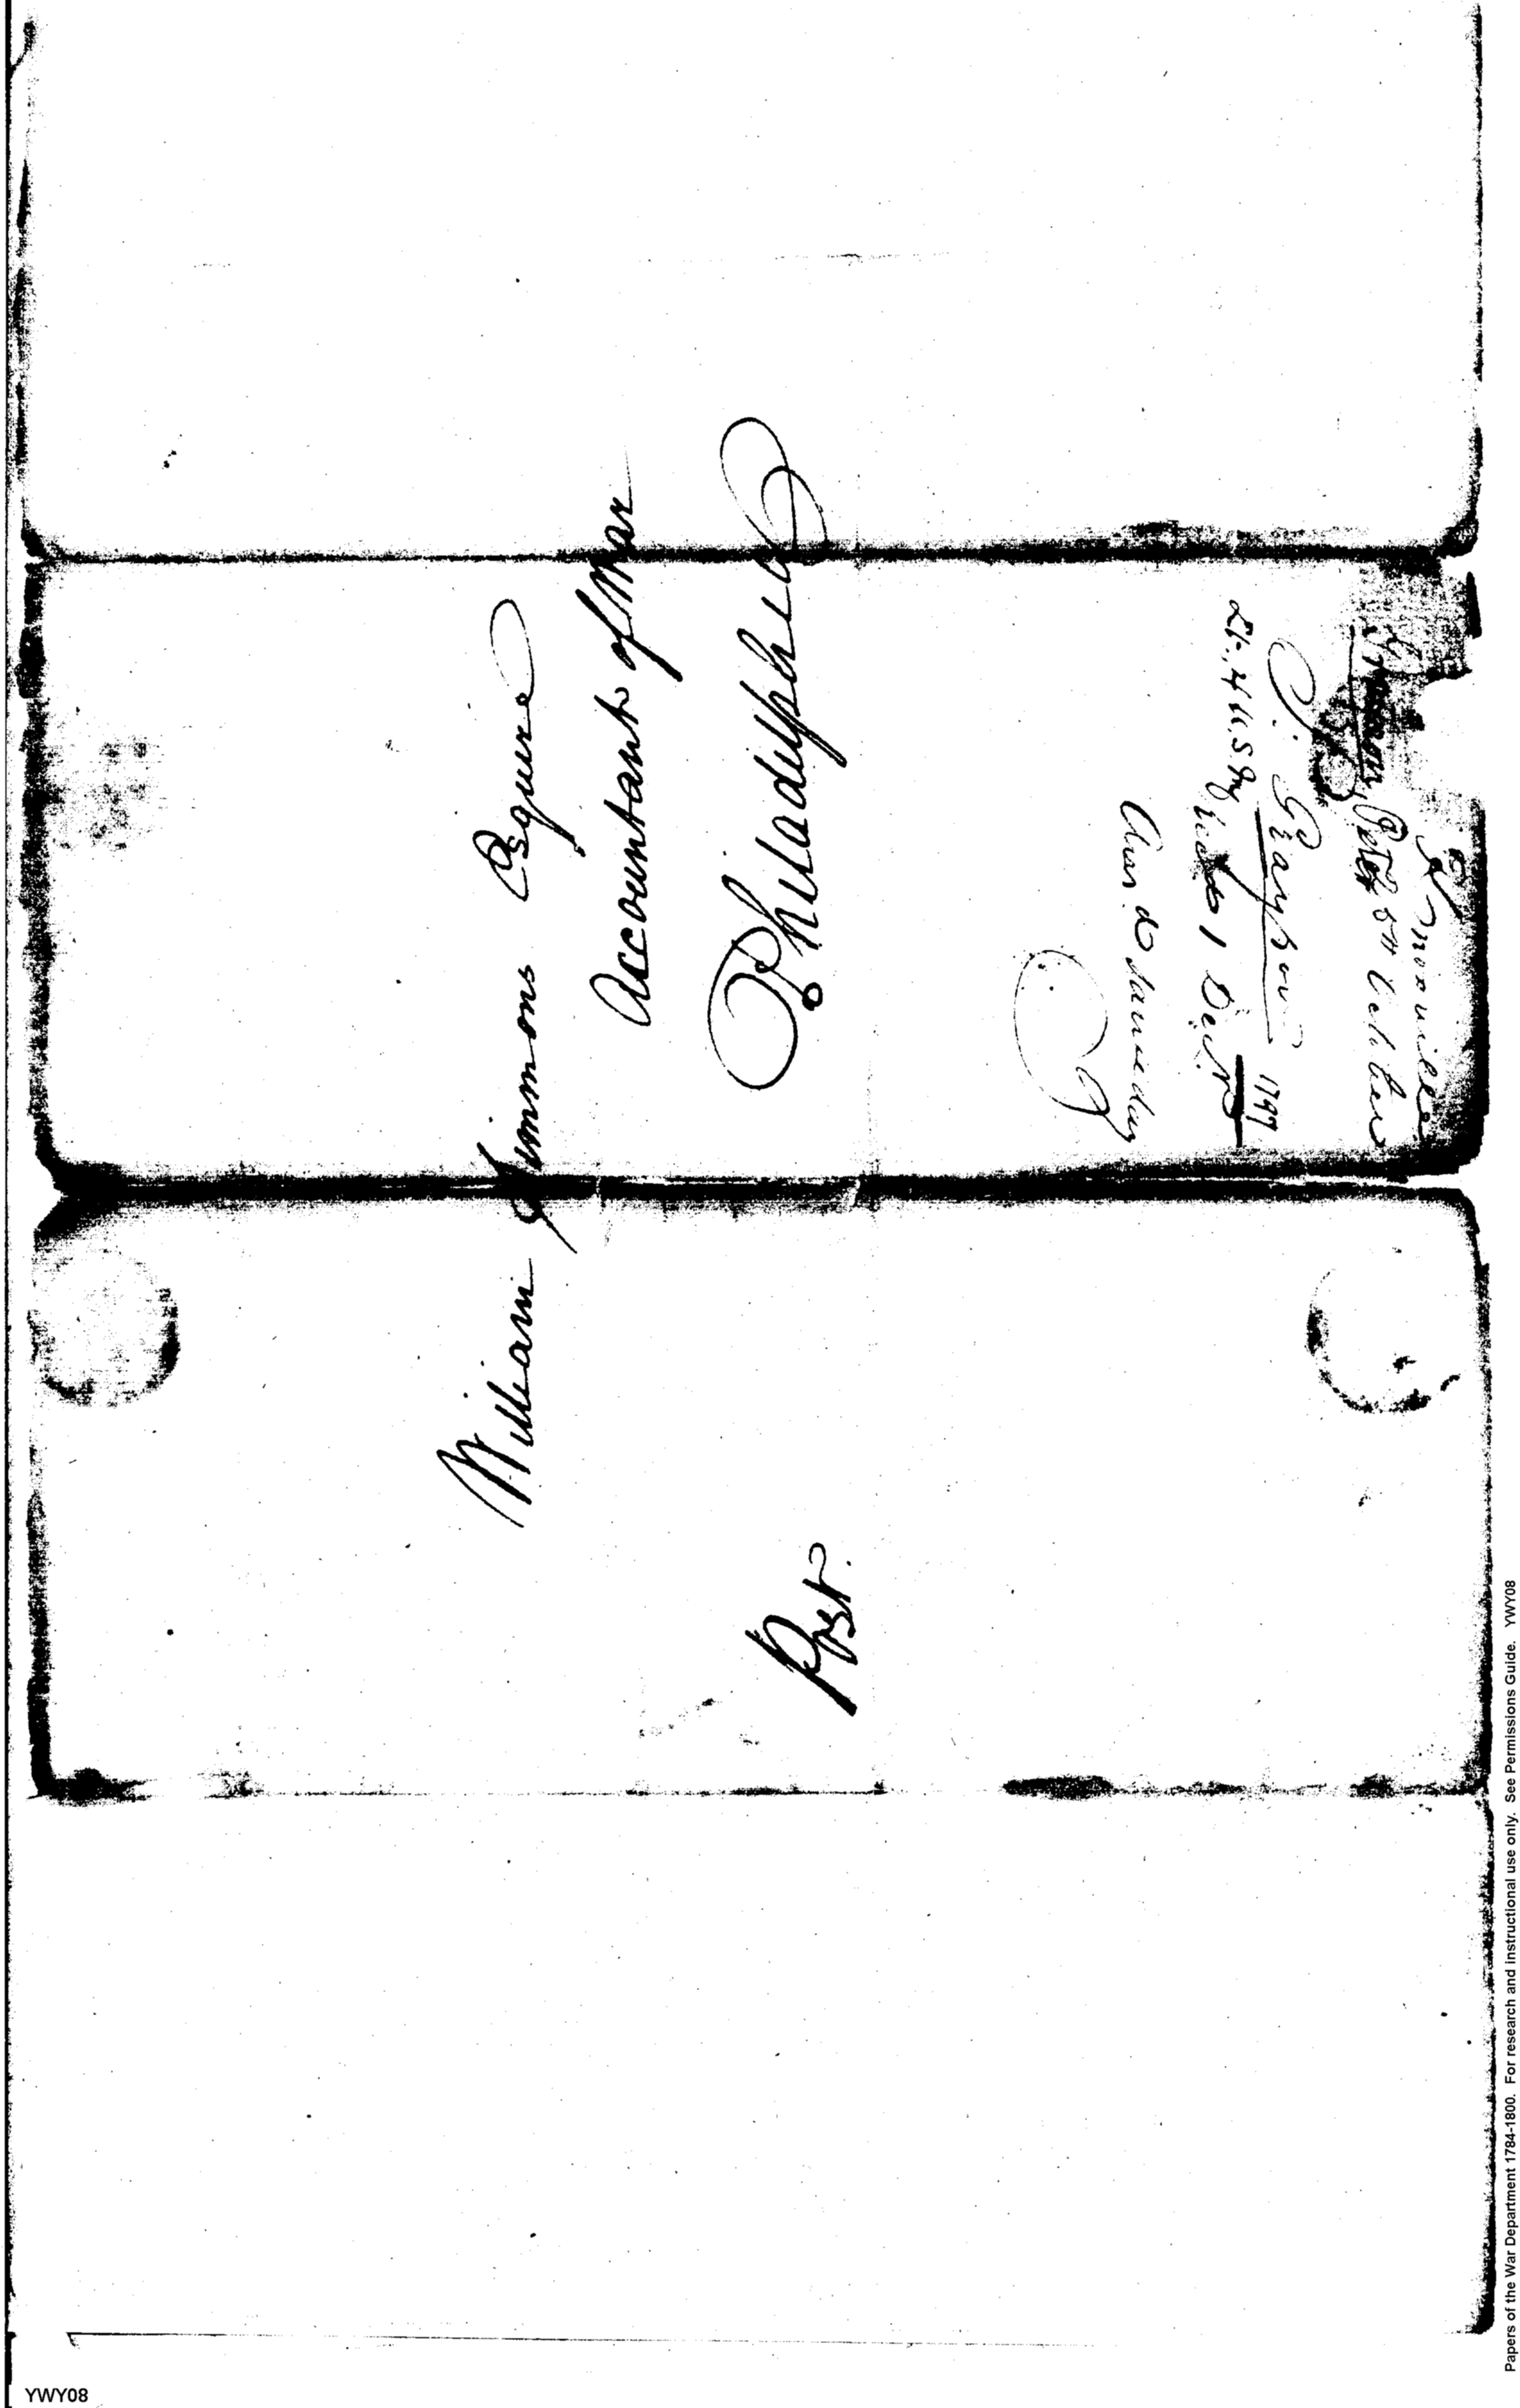 William Simmons Esquire
Accountant of War
Philadelphia
Post.
Knoxville
8th October
P. Grayson
1797
Lt. 4 U.S. Rgt
1 Decr
Ans.d same day
Papers of the War Department 1784-1800. For research and instructional use only. See Permissions Guide. YWY08
YWY08